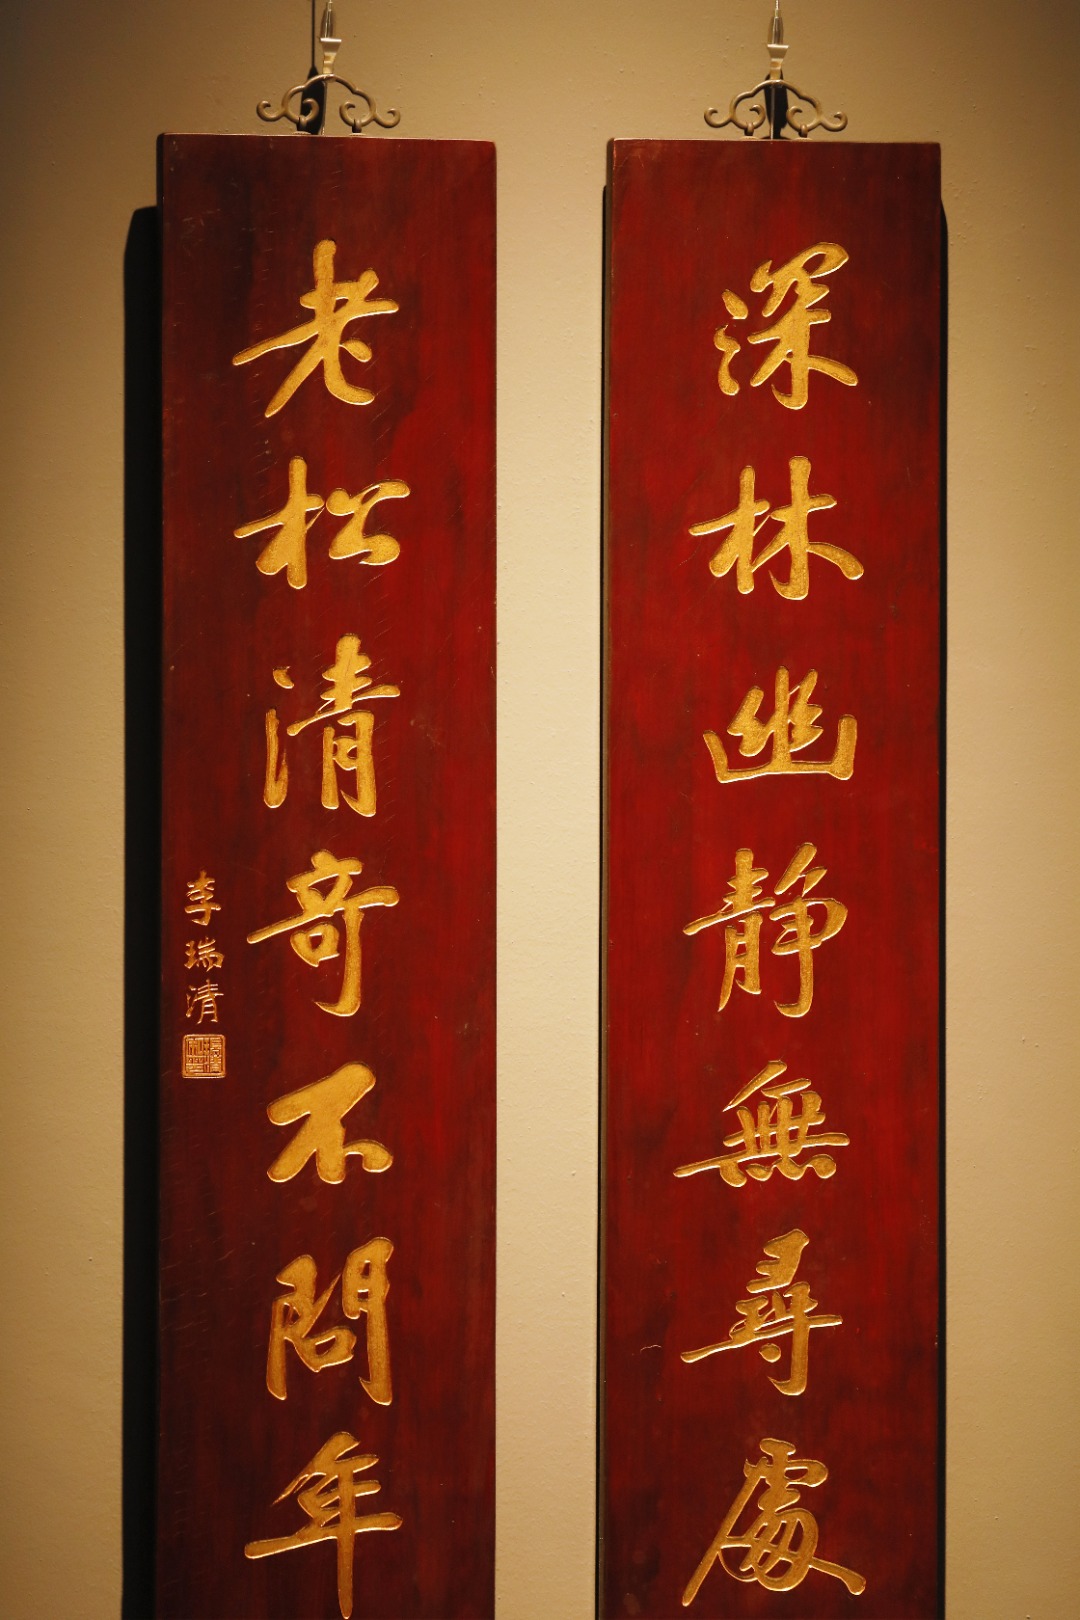 深林幽静無尋處
老松清奇不問年
李瑞清